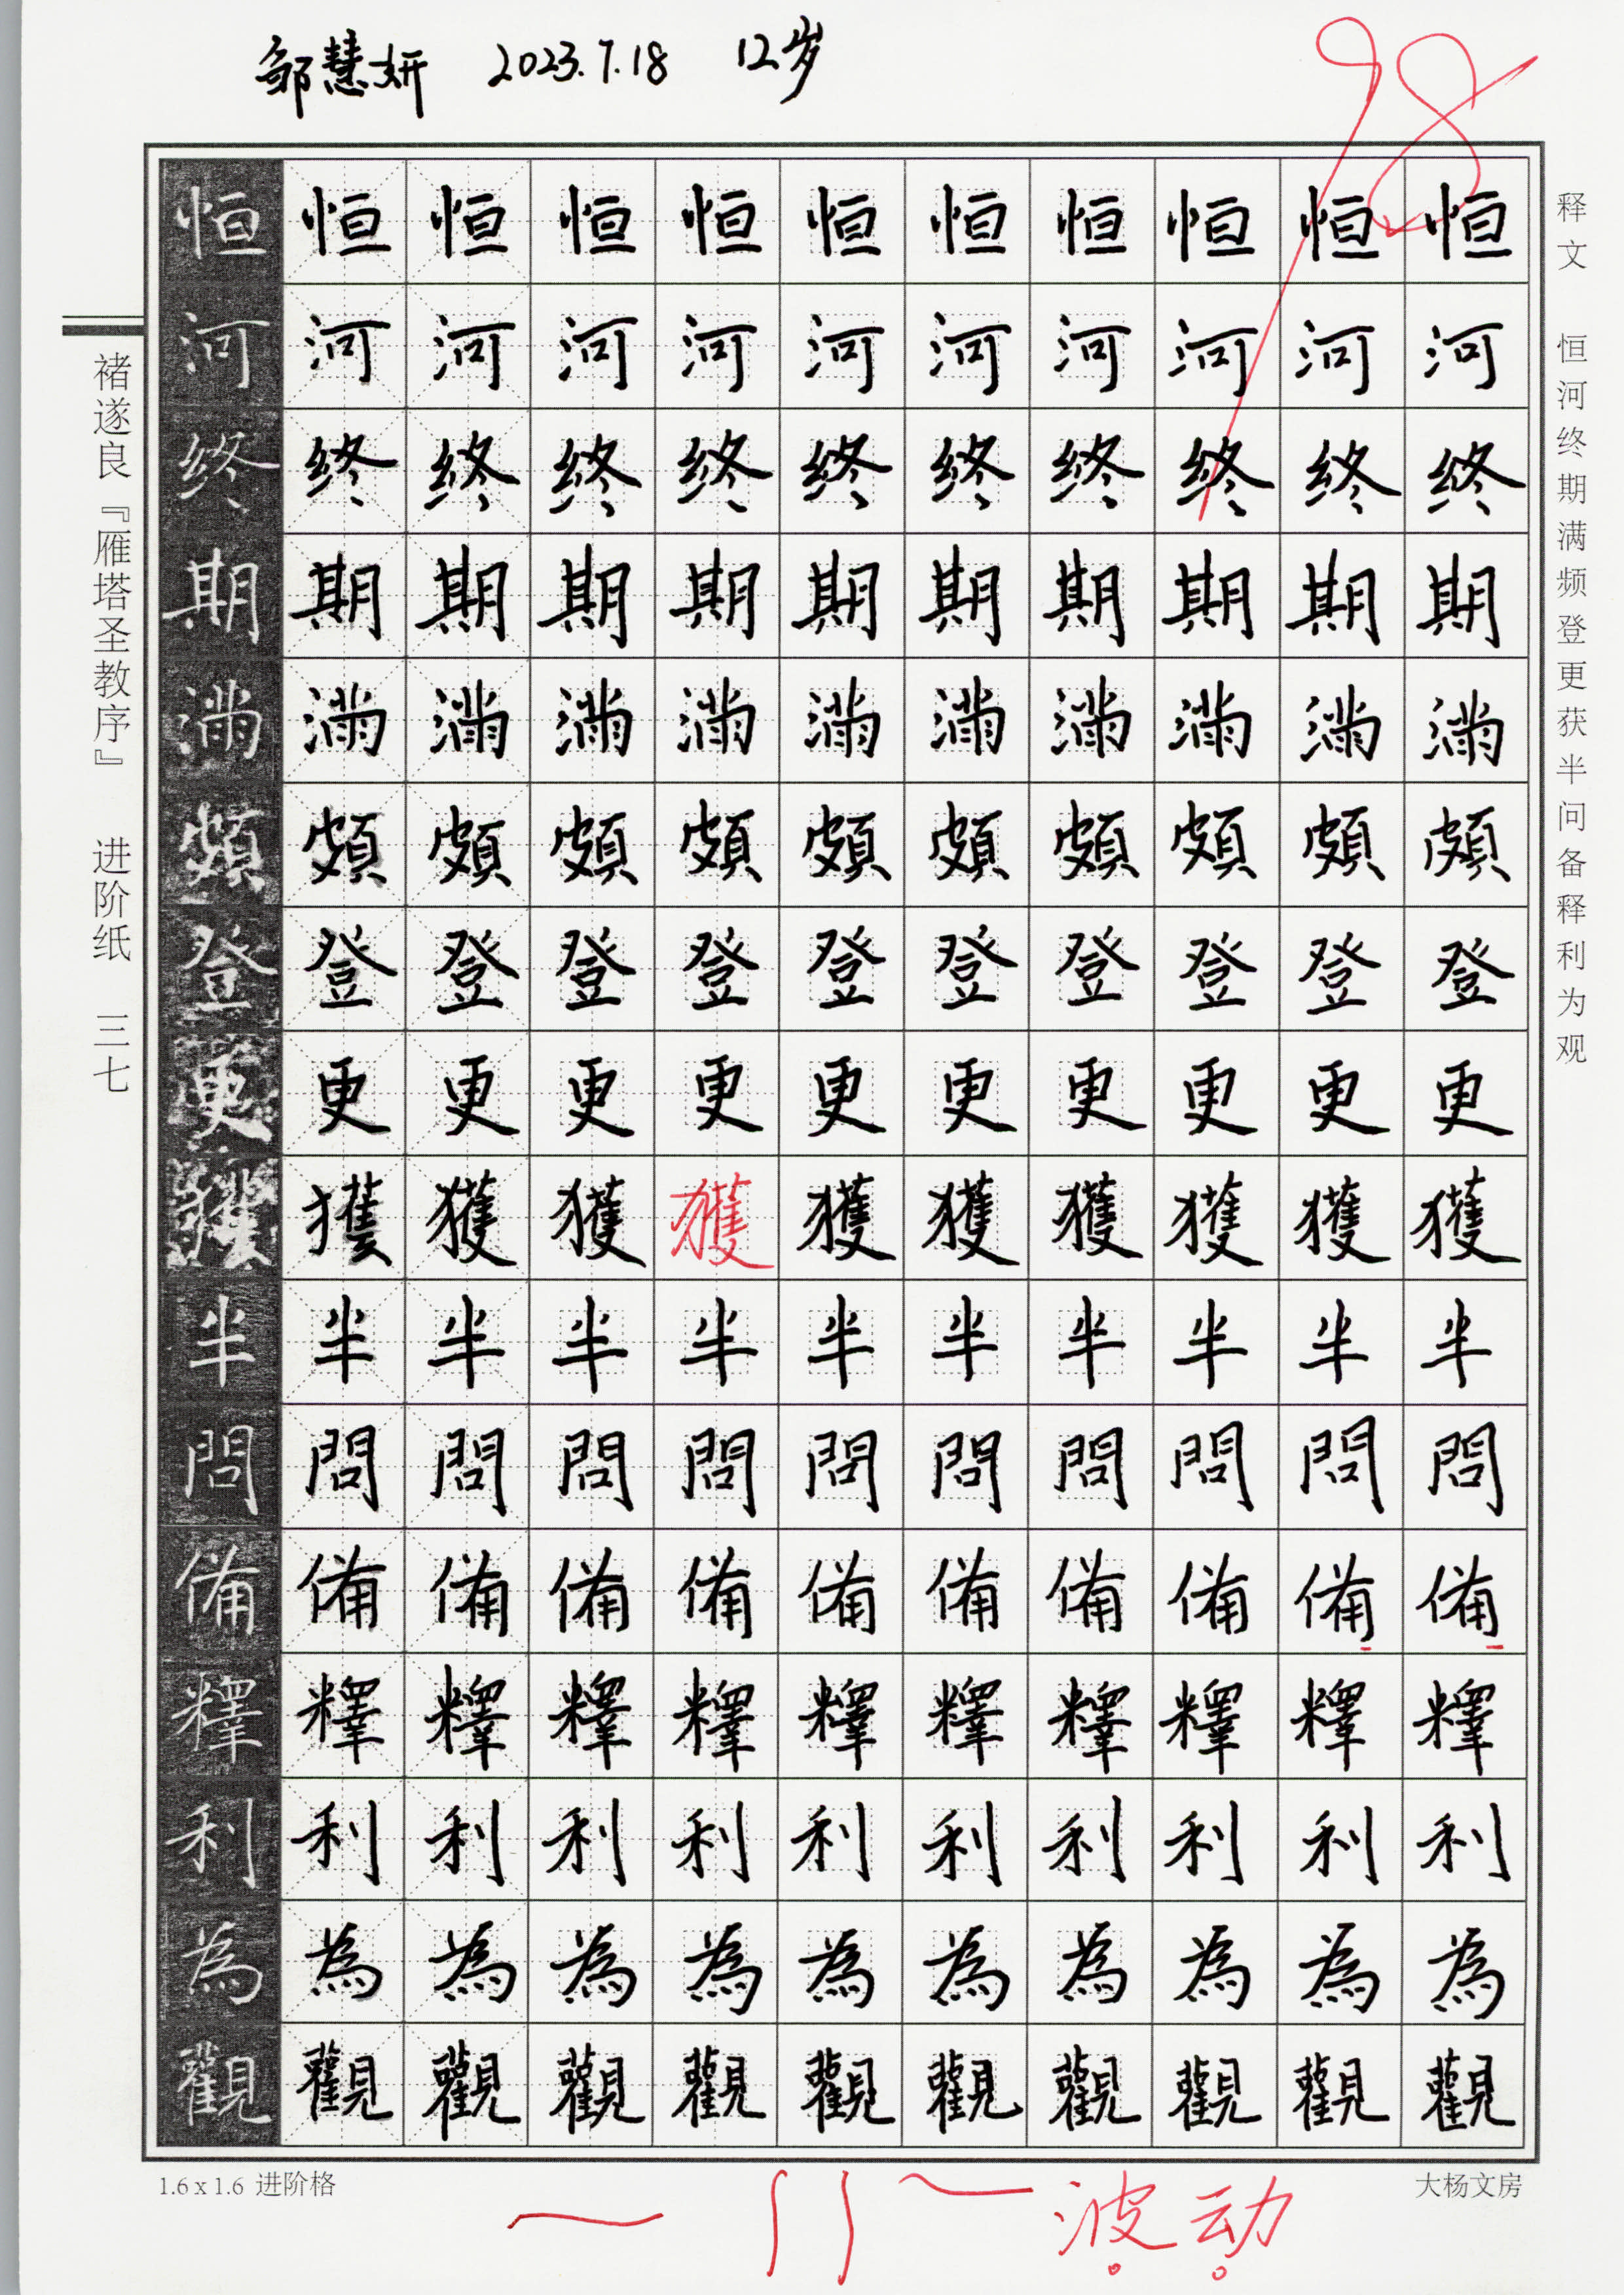 邹慧妍 2023.7.18 12岁
98
恒恒恒恒恒恒恒恒恒恒恒
河河河河河河河河河河河
终终终终终终终终终终终
期期期期期期期期期期期
满满满满满满满满满满满
頻頻頻頻頻頻頻頻頻頻頻
登登登登登登登登登登登
更更更更更更更更更更更
獲獲獲獲獲獲獲獲獲獲獲
半半半半半半半半半半半
問問問問問問問問問問問
備備備備備備備備備備備
釋釋釋釋釋釋釋釋釋釋釋
利利利利利利利利利利利
為為為為為為為為為為為
觀觀觀觀觀觀觀觀觀觀觀
释文 恒河终期满频登更获半问备释利为观
褚遂良『雁塔圣教序』 进阶纸 三七
1.6 x 1.6 进阶格
大杨文房
波动